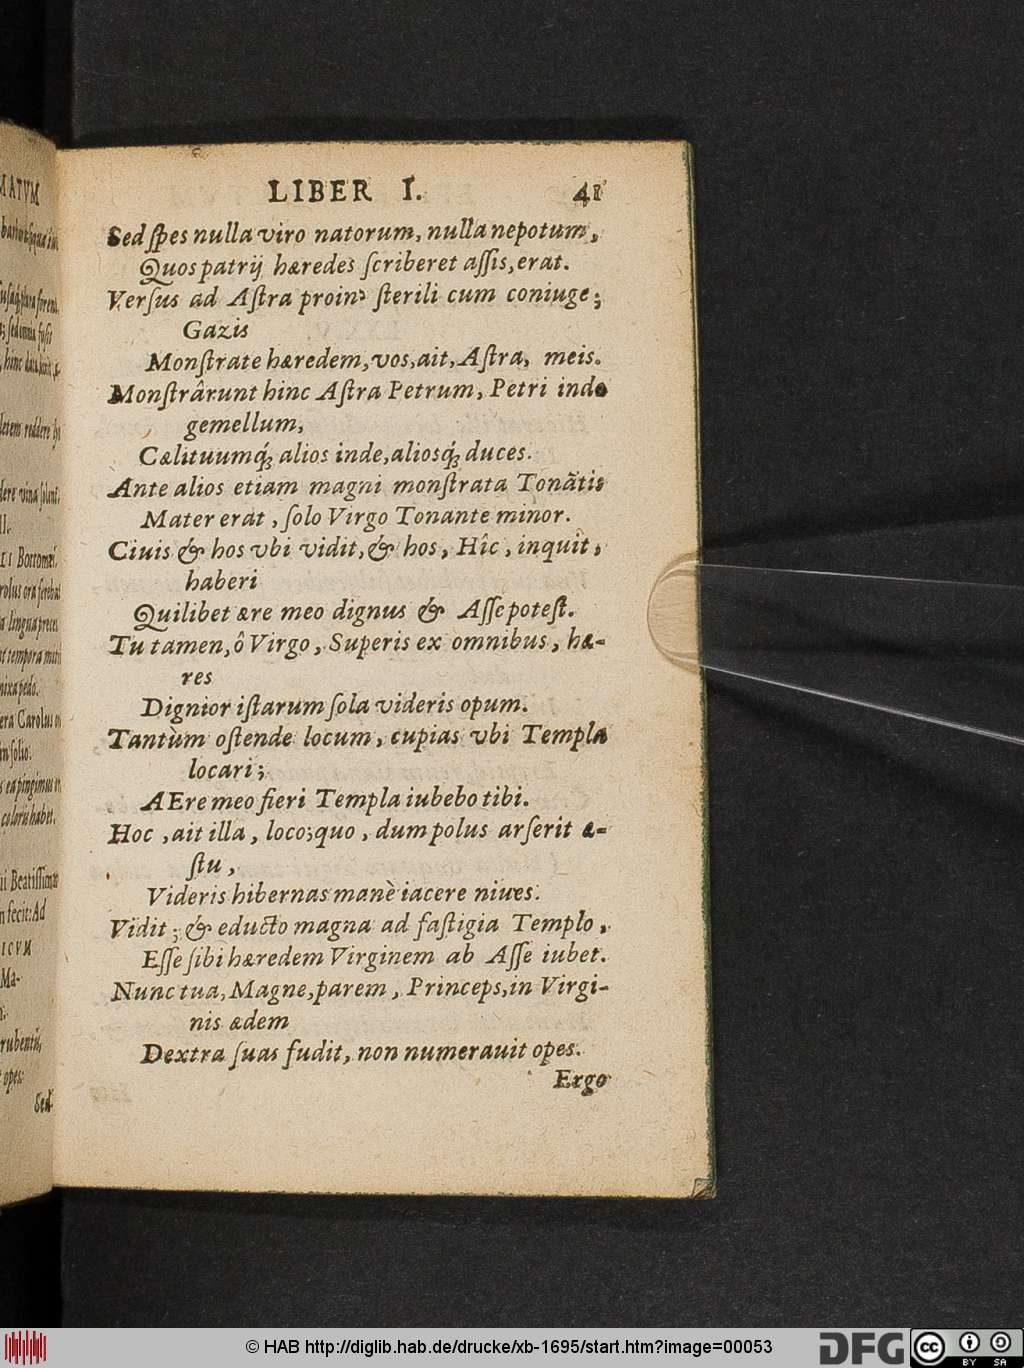 MATVM
II.
Borromæi.
rolus ora ferebat
nixa pedo.
era Carolus
in solio.
coloris habet.
ui Beatissimæ
fecit: Ad
ICVM
Ma-
opes.
Sed
LIBER I. 41
Sed spes nulla viro natorum, nulla nepotum,
Quos patrij hæredes scriberet assis, erat.
Versus ad Astra proin' sterili cum coniuge;
Gazis
Monstrate hæredem, vos, ait, Astra, meis.
Monstrârunt hinc Astra Petrum, Petri inde
gemellum,
Cælituumq́; alios inde, aliosq́; duces.
Ante alios etiam magni monstrata Tonātis
Mater erat, solo Virgo Tonante minor.
Ciuis & hos vbi vidit, & hos, Hîc, inquit,
haberi
Quilibet ære meo dignus & Asse potest.
Tu tamen, ô Virgo, Superis ex omnibus, hæ-
res
Dignior istarum sola videris opum.
Tantùm ostende locum, cupias vbi Templa
locari;
AEre meo fieri Templa iubebo tibi.
Hoc, ait illa, loco; quo, dum polus arserit æ-
stu,
Videris hibernas manè iacere niues.
Vidit; & educto magna ad fastigia Templo,
Esse sibi hæredem Virginem ab Asse iubet.
Nunc tua, Magne, parem, Princeps, in Virgi-
nis ædem
Dextra suas fudit, non numerauit opes.
Ergo
© HAB http://diglib.hab.de/drucke/xb-1695/start.htm?image=00053
DFG
cc
BY SA